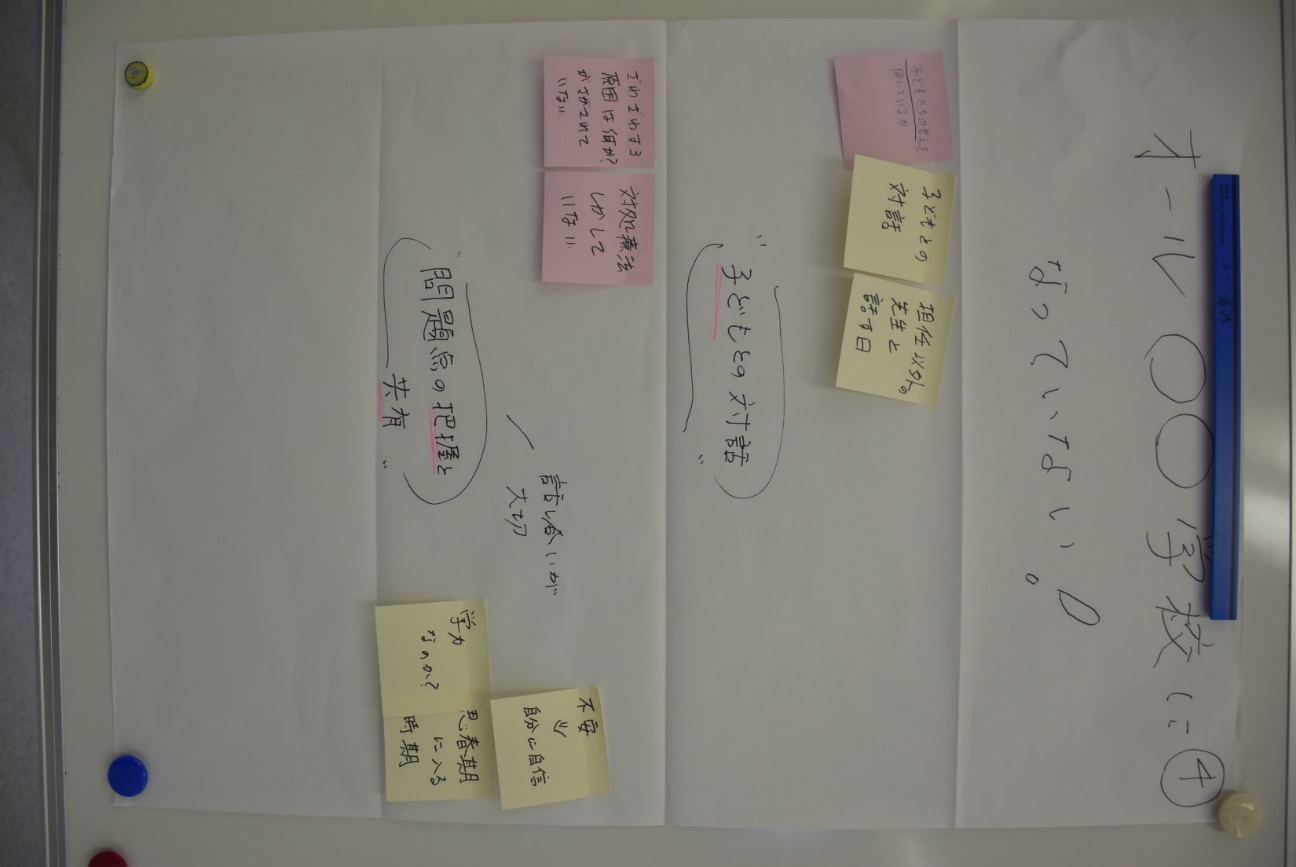 オール〇〇学校に ④
なっていない。
子どもたちの考えを
聞いているか
子どもとの
対話
担任以外の
先生と
話す日
"子どもとの対話"
ざわざわする
原因は何か?
がさがせれて
いない
対処療法
しかして
いない
話し合いが
大切
"問題点の把握と
共有"
不安
⇓
自分に自信
学力
なのか?
思春期
に入る
時期